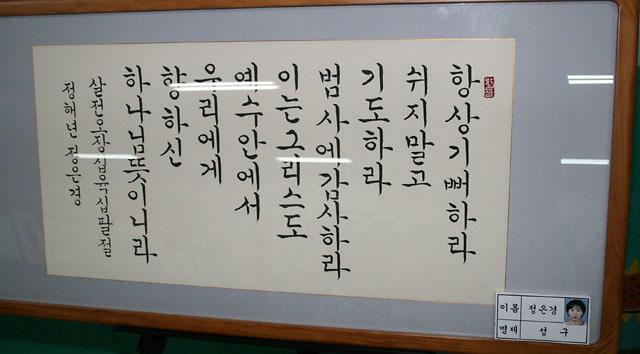 항상기뻐하라
쉬지말고
기도하라
범사에감사하라
이는그리스도
예수안에서
우리에게
향하신
하나님뜻이니라
살전오장십육십팔절
정해년 정은경
이름 정은경
명제 성구